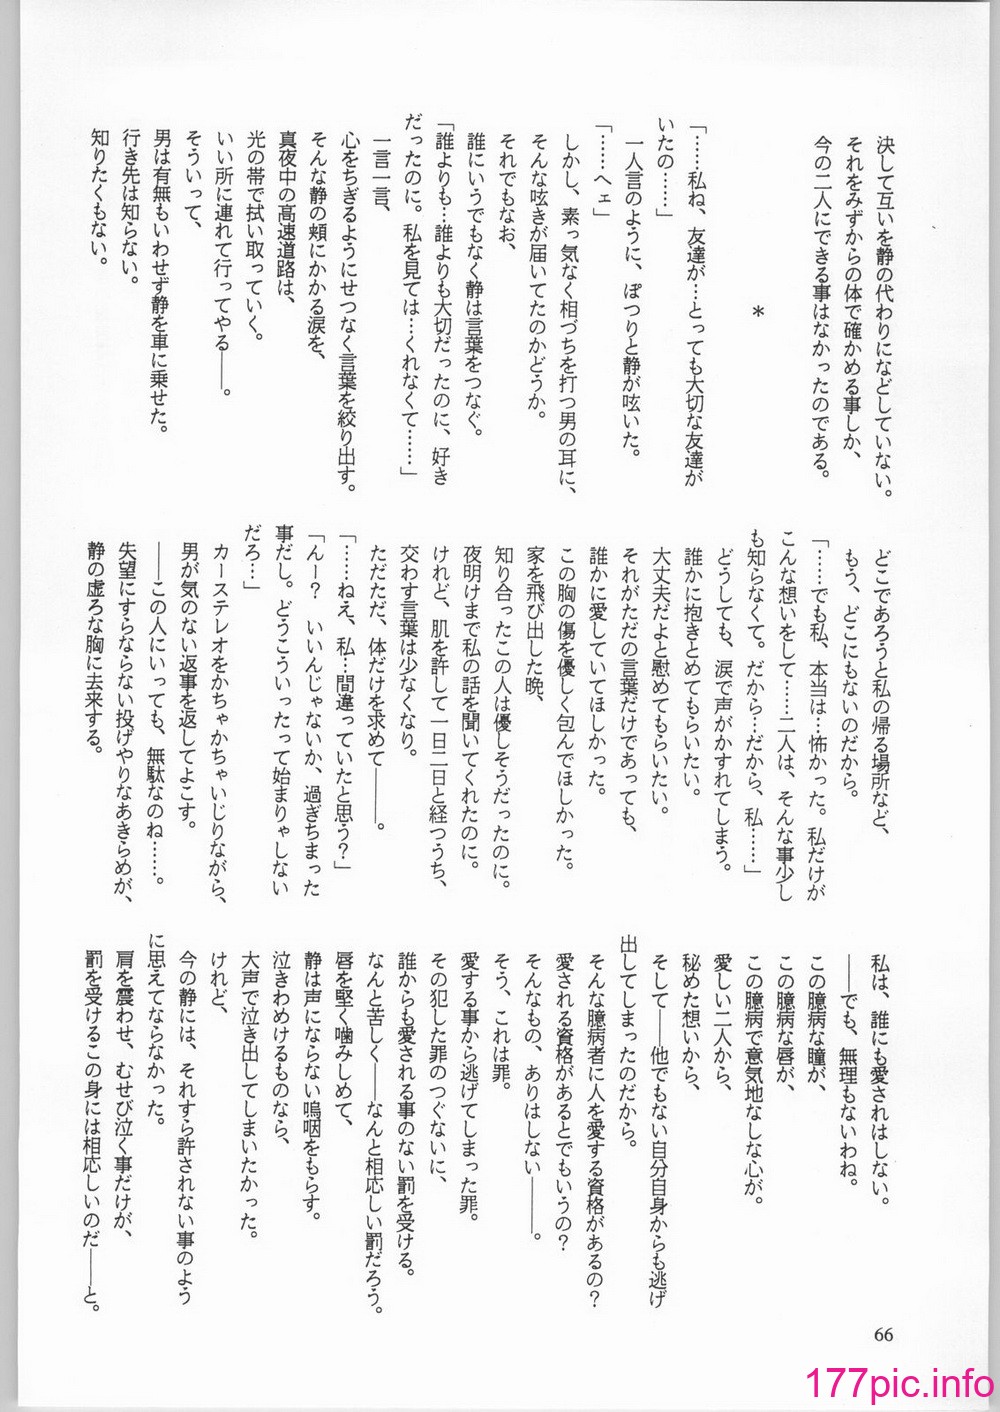 決して互いを静の代わりになどしていない。
それをみずからの体で確かめる事しか、
今の二人にできる事はなかったのである。
*
「……私ね、友達が…とっても大切な友達が
いたの……」
一人言のように、ぽつりと静が呟いた。
「……へェ」
しかし、素っ気なく相づちを打つ男の耳に、
そんな呟きが届いてたのかどうか。
それでもなお、
誰にいうでもなく静は言葉をつなぐ。
「誰よりも…誰よりも大切だったのに、好き
だったのに。私を見ては…くれなくて……」
一言一言、
心をちぎるようにせつなく言葉を絞り出す。
そんな静の頬にかかる涙を、
真夜中の高速道路は、
光の帯で拭い取っていく。
いい所に連れて行ってやる――。
そういって、
男は有無もいわせず静を車に乗せた。
行き先は知らない。
知りたくもない。
どこであろうと私の帰る場所など、
もう、どこにもないのだから。
「……でも私、本当は…怖かった。私だけが
こんな想いをして……二人は、そんな事少し
も知らなくて。だから…だから、私……」
どうしても、涙で声がかすれてしまう。
誰かに抱きとめてもらいたい。
大丈夫だよと慰めてもらいたい。
それがただの言葉だけであっても、
誰かに愛していてほしかった。
この胸の傷を優しく包んでほしかった。
家を飛び出した晩、
知り合ったこの人は優しそうだったのに。
夜明けまで私の話を聞いてくれたのに。
けれど、肌を許して一日二日と経つうち、
交わす言葉は少なくなり。
ただただ、体だけを求めて――。
「……ねえ、私…間違っていたと思う？」
「んー？　いいんじゃないか、過ぎちまった
事だし。どうこういったって始まりゃしない
だろ…」
カーステレオをかちゃかちゃいじりながら、
男が気のない返事を返してよこす。
――この人にいっても、無駄なのね……。
失望にすらならない投げやりなあきらめが、
静の虚ろな胸に去来する。
私は、誰にも愛されはしない。
――でも、無理もないわね。
この臆病な瞳が、
この臆病な唇が、
この臆病で意気地なしな心が。
愛しい二人から、
秘めた想いから、
そして――他でもない自分自身からも逃げ
出してしまったのだから。
そんな臆病者に人を愛する資格があるの？
愛される資格があるとでもいうの？
そんなもの、ありはしない――。
そう、これは罪。
愛する事から逃げてしまった罪。
その犯した罪のつぐないに、
誰からも愛される事のない罰を受ける。
なんと苦しく――なんと相応しい罰だろう。
唇を堅く噛みしめて、
静は声にならない嗚咽をもらす。
泣きわめけるものなら、
大声で泣き出してしまいたかった。
けれど、
今の静には、それすら許されない事のよう
に思えてならなかった。
肩を震わせ、むせび泣く事だけが、
罰を受けるこの身には相応しいのだ――と。
66
177pic.info